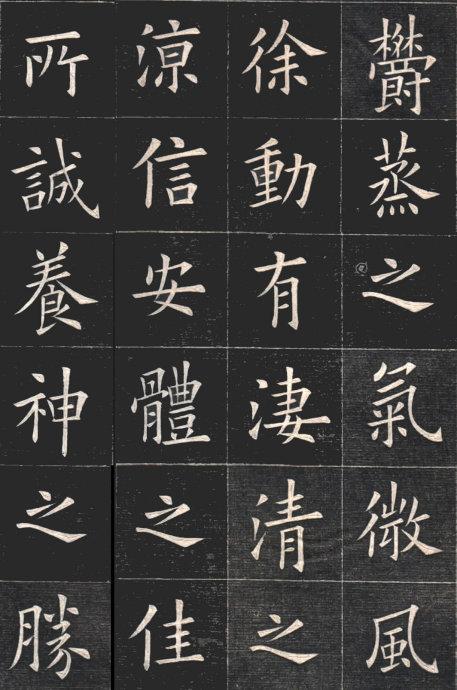 鬱蒸之氣微風
徐動有淒清之
涼信安體之佳
所誠養神之勝